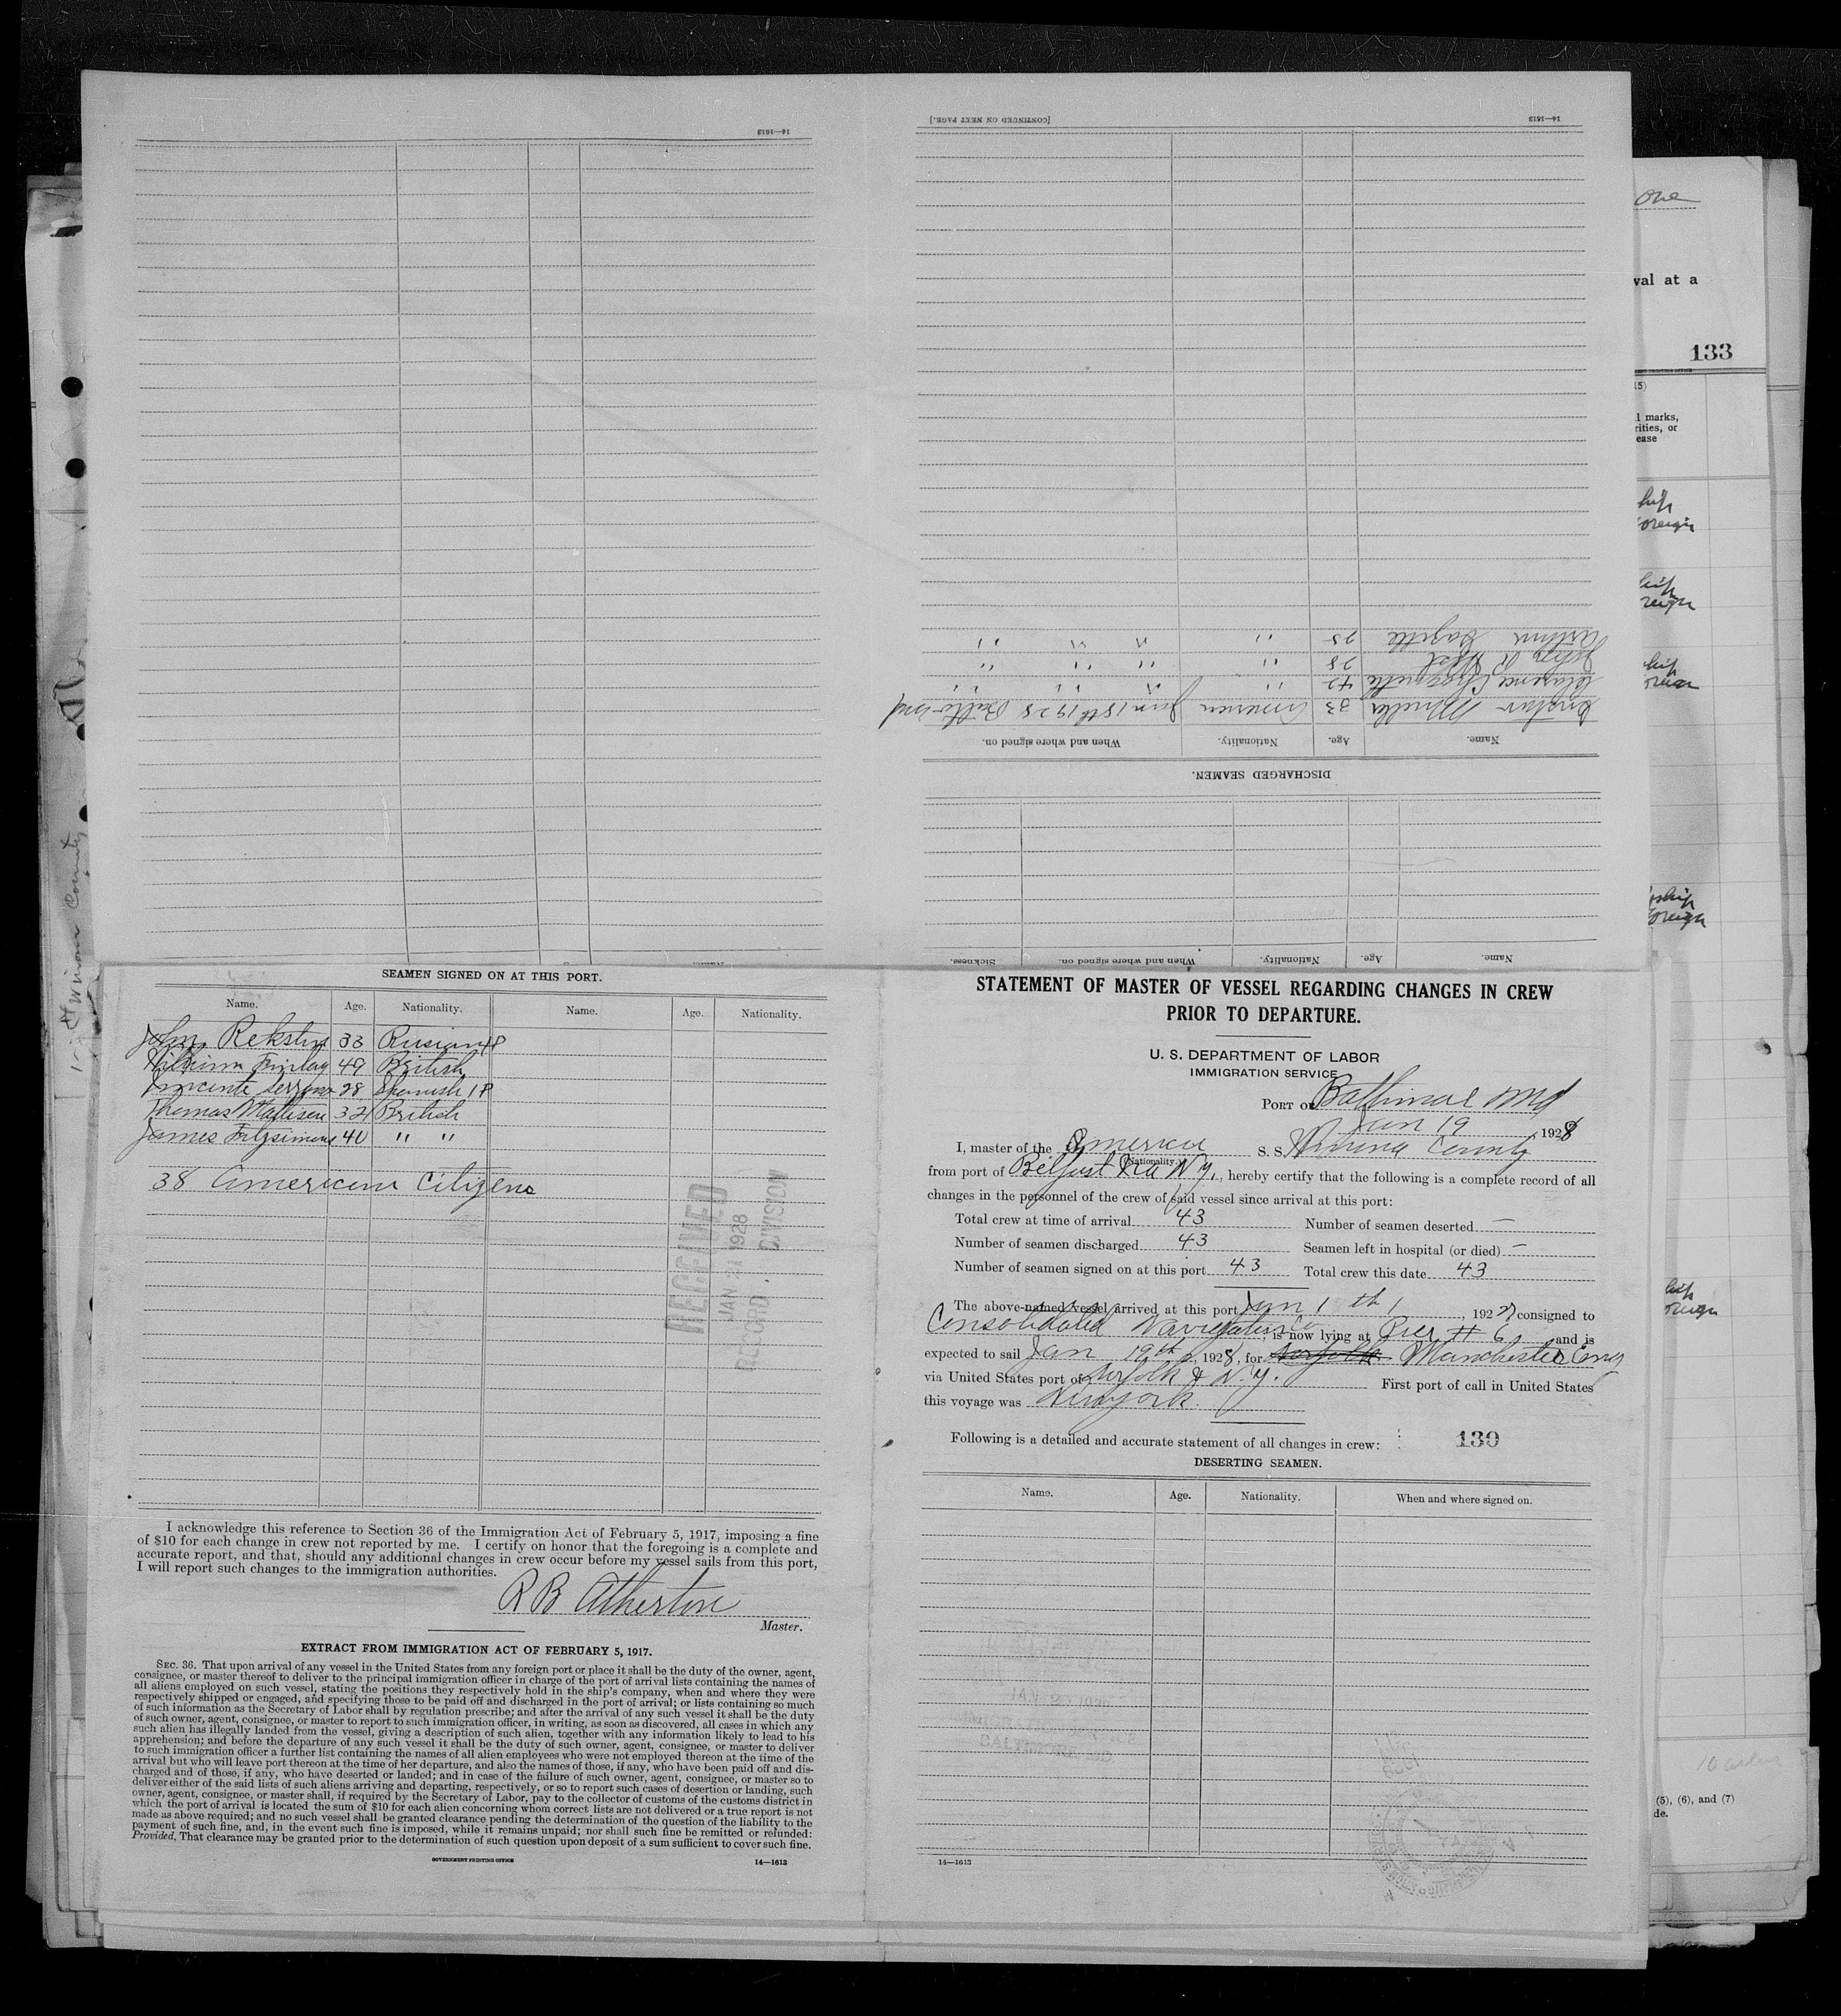 14—1613
[CONTINUED ON NEXT PAGE.]
14—1613
one
val at a
133
15)
l marks,
rities, or
ease
ship
foreign
25 " " " "
28 " " " "
42 " " " "
33 American Jan 18th 1928 Balto md
Name. Age. Nationality. When and where signed on.
DISCHARGED SEAMEN.
Name. Age. Nationality. When and where signed on. Sickness.
Winona County
SEAMEN SIGNED ON AT THIS PORT.
Name. Age. Nationality. Name. Age. Nationality.
John Rekstins 33 Russian
William Finlay 49 British
Vincente Serrano 28 Spanish
Thomas Mattisen 32 British
James Fitzsimons 40 " "
38 American Citizens
RECEIVED
JAN 21 1928
RECORD DIVISION
I acknowledge this reference to Section 36 of the Immigration Act of February 5, 1917, imposing a fine
of $10 for each change in crew not reported by me. I certify on honor that the foregoing is a complete and
accurate report, and that, should any additional changes in crew occur before my vessel sails from this port,
I will report such changes to the immigration authorities.
R B Atherton
Master.
EXTRACT FROM IMMIGRATION ACT OF FEBRUARY 5, 1917.
SEC. 36. That upon arrival of any vessel in the United States from any foreign port or place it shall be the duty of the owner, agent,
consignee, or master thereof to deliver to the principal immigration officer in charge of the port of arrival lists containing the names of
all aliens employed on such vessel, stating the positions they respectively hold in the ship's company, when and where they were
respectively shipped or engaged, and specifying those to be paid off and discharged in the port of arrival; or lists containing so much
of such information as the Secretary of Labor shall by regulation prescribe; and after the arrival of any such vessel it shall be the duty
of such owner, agent, consignee, or master to report to such immigration officer, in writing, as soon as discovered, all cases in which any
such alien has illegally landed from the vessel, giving a description of such alien, together with any information likely to lead to his
apprehension; and before the departure of any such vessel it shall be the duty of such owner, agent, consignee, or master to deliver
to such immigration officer a further list containing the names of all alien employees who were not employed thereon at the time of the
arrival but who will leave port thereon at the time of her departure, and also the names of those, if any, who have been paid off and dis-
charged and of those, if any, who have deserted or landed; and in case of the failure of such owner, agent, consignee, or master so to
deliver either of the said lists of such aliens arriving and departing, respectively, or so to report such cases of desertion or landing, such
owner, agent, consignee, or master shall, if required by the Secretary of Labor, pay to the collector of customs of the customs district in
which the port of arrival is located the sum of $10 for each alien concerning whom correct lists are not delivered or a true report is not
made as above required; and no such vessel shall be granted clearance pending the determination of the question of the liability to the
payment of such fine, and, in the event such fine is imposed, while it remains unpaid; nor shall such fine be remitted or refunded:
Provided, That clearance may be granted prior to the determination of such question upon deposit of a sum sufficient to cover such fine.
GOVERNMENT PRINTING OFFICE
14—1613
STATEMENT OF MASTER OF VESSEL REGARDING CHANGES IN CREW
PRIOR TO DEPARTURE.
U. S. DEPARTMENT OF LABOR
IMMIGRATION SERVICE
PORT OF Baltimore Md
Jan 19, 1928
I, master of the America S. S. Winona County
(Nationality.)
from port of Belfast via N Y., hereby certify that the following is a complete record of all
changes in the personnel of the crew of said vessel since arrival at this port:
Total crew at time of arrival 43 Number of seamen deserted —
Number of seamen discharged 43 Seamen left in hospital (or died) —
Number of seamen signed on at this port 43 Total crew this date 43
The above-named vessel arrived at this port Jan 192 consigned to
Consolidated Navigation Co, is now lying at Pier # 6, and is
expected to sail Jan 19th, 1928, for Norfolk Manchester Eng
via United States port of Norfolk & N.Y. First port of call in United States
this voyage was New York.
Following is a detailed and accurate statement of all changes in crew: 130
DESERTING SEAMEN.
Name. Age. Nationality. When and where signed on.
BALTIMORE, MD.
14—1613
(5), (6), and (7)
de.